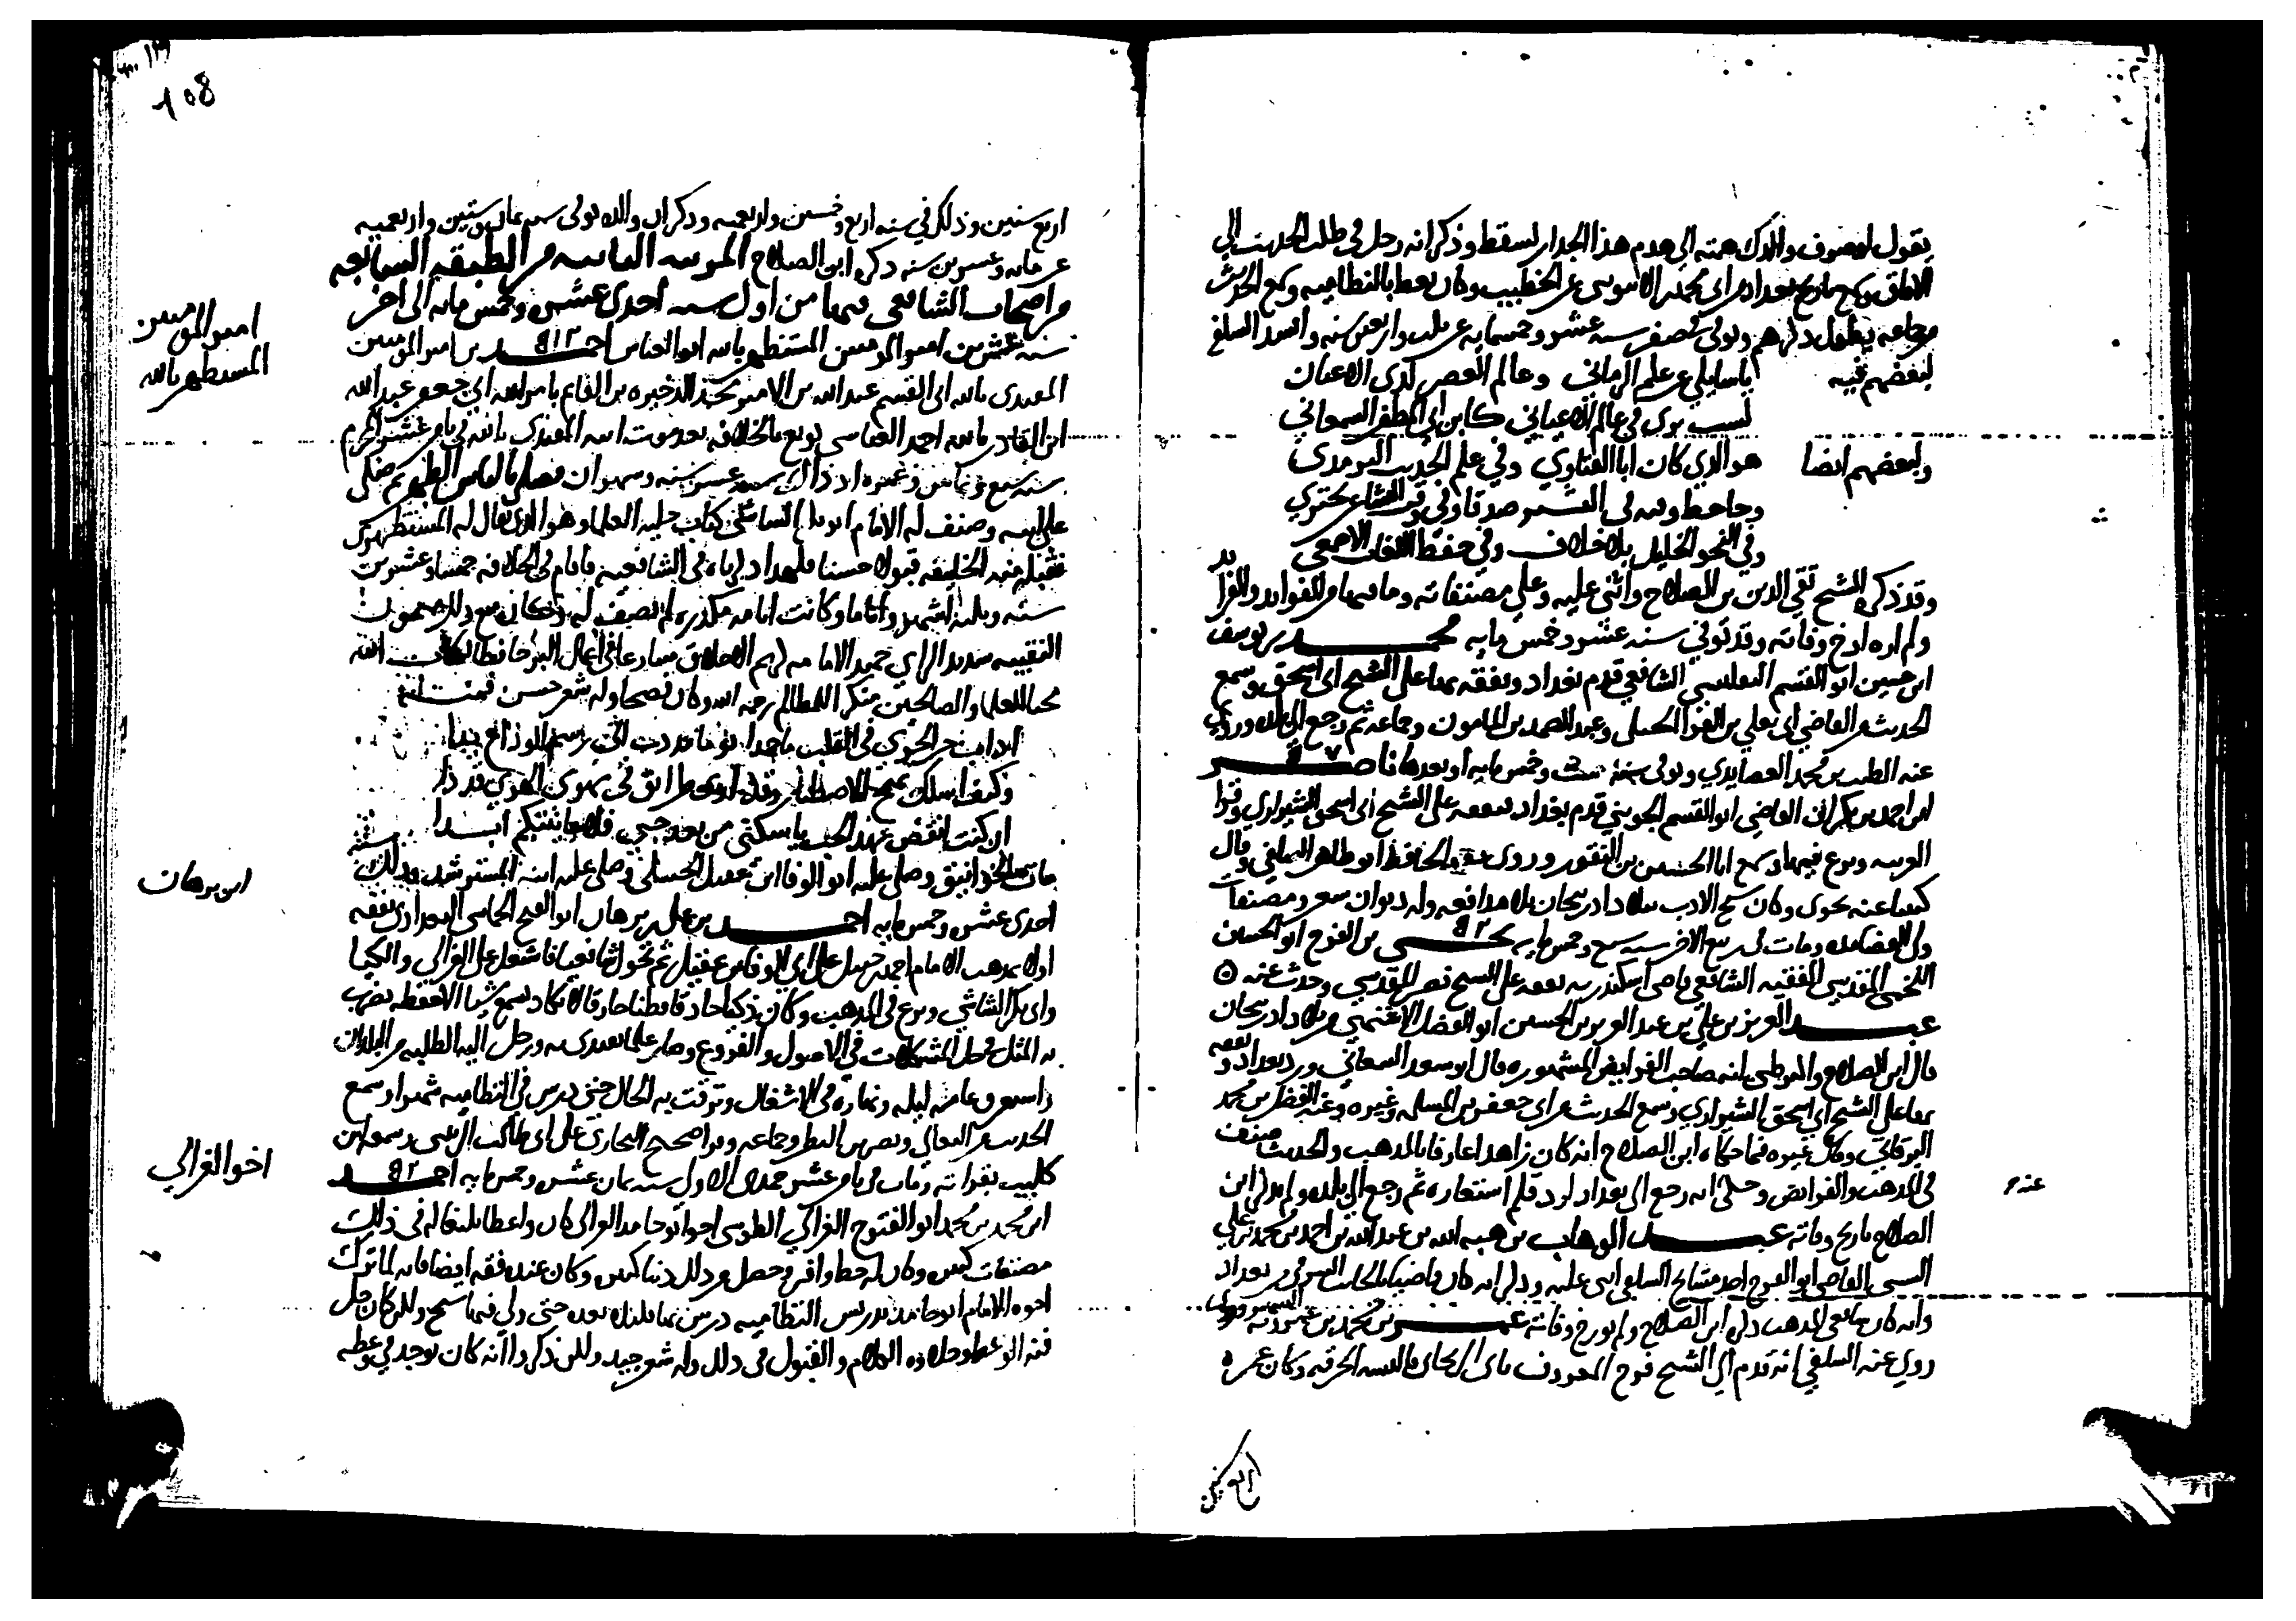 يقول لو صرف والدك همته الى هدم هذا الجدار لسقط وذكر انه رحل في طلب الحديث الى
الافاق وسمع تاريخ بغداد من ابي محمد الابنوسي عن الخطيب وكان يعظ بالنظامية وسمع الحديث
من جماعه يطول ذكرهم وتوفي في صفر سنه عشر وخمسمايه عن ثلث واربعين سنه وانشد السلفي
لبعضهم فيه
يا سايلي عن علم الزماني وعالم العصر لدى الاعيان
لست ترى في عالم الاعياني كابن ابي المظفر السمعاني
ولبعضهم ايضا
هو الذي كان ابا الفتاوي وفي علم الحديث الترمذي
وجاحظ وقته في النثر صدقا وفي وقت الشاعر بحتري
وفي النحو الخليل بلا خلاف وفي حفظ اللغات الاصمعي
وقد ذكره الشيخ تقي الدين بن الصلاح واثنى عليه وعلى مصنفاته وما فيها من الفوايد والفرا
يد
ولم اره ارخ وفاته وقد توفي سنه عشر وخمس مايه محمد بن يوسف
ابن حسين ابو القسم التفليسي الشافعي قدم بغداد وتفقه بها على الشيخ ابي اسحق وسمع
الحديث من القاضي ابي يعلى بن الفرا الحنبلي وعبد الصمد بن المامون وجماعه ثم رجع الى بلاده وروي
عنه الطيب بن محمد الغضايري وتوفي سنه ست وخمس مايه او بعدها ناصر
ابن احمد بن بكران القاضي ابو القسم الخويني قدم بغداد تفقه على الشيخ ابي اسحق الشيرازي وقرا
العربيه وبرع فيها وسمع ابا الحسين بن النقور وروى عنه الحافظ ابو طاهر السلفي وقال
كتبنا عنه بخوى وكان شيخ الادب ببلاد اذربيجان بلا مدافعه وله ديوان شعر ومصنفات
ولي القضا مده ومات في ربيع الاخر سنه سبع وخمس مايه يحيى بن الفرج ابو الحسين
اللخمي المقدسي الفقيه الشافعي قاضي اسكندريه تفقه على الشيخ نصر المقدسي وحدث عنه ه
عبد العزيز بن علي بن عبد العزيز بن الحسين ابو الفضل الاشنهي من بلاد اذربيجان
قال ابن الصلاح والبرطي انه صاحب الفرايض المشهوره قال ابو سعد السمعاني ورد بغداد و
تفقه
بها على الشيخ ابي اسحق الشيرازي وسمع الحديث من ابي جعفر بن المسلمه وغيره وعنه الفضل بن محمد
النوقاني وقال غيره فيما حكاه ابن الصلاح انه كان زاهدا عارفا بالمذهب والحديث صنف
في المذهب والفرايض وحكي انه رجع الى بغداد لرد قلم استعاره ثم رجع الى بلده ولم يذكر ابن
عنده
الصلاح تاريخ وفاته عبد الوهاب بن هبه الله بن عبد الله بن احمد بن محمد بن علي
السيبي القاضي ابو الفرج احد مشايخ السلفي اثنى عليه وذكر انه كان قاضيا بالجانب الشرقي من بغداد
وانه كان شافعي المذهب ذكره ابن الصلاح ولم يورخ وفاته عمر بن محمد بن عمويه السهروردي
روى عنه السلفي انه قدم الى الشيخ فرج المعروف باخي الزنجاني فالبسه الخرقه وكان عمره
108
اربع سنين وذلك في سنه اربع وخمسين واربعميه وذكر ان والده توفي سنه ثمان وستين واربعميه
عن مايه وعشرين سنه ذكره ابن الصلاح المرتبه الثانيه من الطبقه السابعه
من اصحاب الشافعي فيها من اول سنه احدى عشر وخمس مايه الى اخر
سنه عشرين امير المومنين المستظهر بالله ابو العباس احمد بن امير المومنين
امير المومنين
المستظهر بالله
المقتدي بالله ابي القسم عبد الله بن الامير محمد الذخيره بن القايم بامر الله ابي جعفر عبد الله
ابن القادر بالله احمد العباسي بويع بالخلافه بعد موت ابيه المقتدي بالله في ثامن عشر المحرم
سنه سبع وثمانين وعمره اذ ذاك سته عشر سنه وشهران فصلى بالناس الظهر ثم صلى
على ابيه وصنف له الامام ابو بكر الشاشي كتاب حليه العلما وهو الذي يقال له المستظهري
فتقبله منه الخليفه قبولا حسنا فاقام في الخلافه خمسا وعشرين
سنه وثلثه اشهر واياما وكانت ايامه مكدره لم تصف له وكان مع ذلك ميمون
النقيبه سديد الراي حميد الايام كريم الاخلاق مسارعا في اعمال البر حافظا لكتاب الله
محبا للعلما والصالحين منكرا للظالم رحمه الله وكان فصيحا وله شعر حسن فمنه
اذاب حر الجوى في القلب ما جمدا يوما مددت الى رسم الوداع يدا
وكيف اسلك نهج الاصطبار وقد ارى طرايق في مهوى الهوى قددا
ان كنت انقض عهد الحب يا سكني من بعد حبي فلا عاينتكم ابدا
مات بعله الخوانيق وصلى عليه ابو الوفا ابن عقيل الحنبلي وصلى عليه ابنه المسترشد وذلك سنه
احدى عشر وخمس مايه احمد بن علي بن برهان ابو الفتح الحمامي البغدادي تفقه
ابن برهان
اولا بمذهب الامام احمد بن حنبل على ابي الوفا بن عقيل ثم تحول شافعيا فاشتغل على الغزالي والكيا
وابي بكر الشاشي وبرع في المذهب وكان ذكيا حاذقا فطنا خارقا لا يكاد يسمع شيا الا حفظه يضرب
به المثل في حل المشكلات في الاصول والفروع وصار علما يقتدى به ورحل اليه الطلبه من البلدان
واستغرق عامه ليله ونهاره في الاشغال وترقت به الحال حتى درس في النظاميه شهرا وسمع
الحديث من النعالي ونصر بن البطر وجماعه وقرا صحيح البخاري على ابي طالب الزينبي وسمعه ابن
كليب بقراته ومات في ثامن عشر جمادى الاول سنه ثمان عشر وخمس مايه احمد
اخو الغزالي
ابن محمد بن محمد ابو الفتوح الغزالي الطوسي اخو ابو حامد الغزالي كان واعظا بليغا له في ذلك
مصنفات كثيره وكان له حظ وافر وحصل من ذلك دنيا كثيره وكان عنده فقه ايضا فانه لما ترك
اخوه الامام ابو حامد تدريس النظاميه درس بها بعده حتى ولكن كان جل
فنه الوعظ وحلاوه الكلام والقبول في ذلك وله شعر جيد ولكن ذكروا انه كان يوجد في وعظه